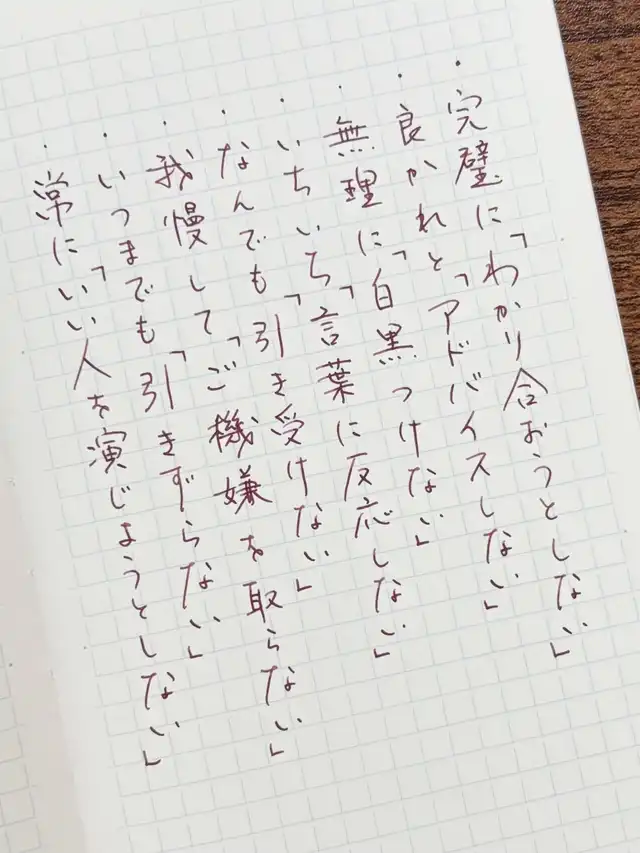 ・完璧に「わかり合おうとしない」
・良かれと「アドバイスしない」
・無理に「白黒つけない」
・いちいち「言葉に反応しない」
・なんでも「引き受けない」
・我慢して「ご機嫌を取らない」
・いつまでも「引きずらない」
・常に「いい人を演じようとしない」